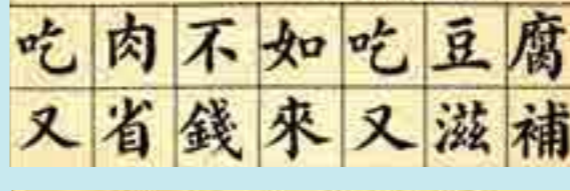 吃肉不如吃豆腐
又省錢來又滋補